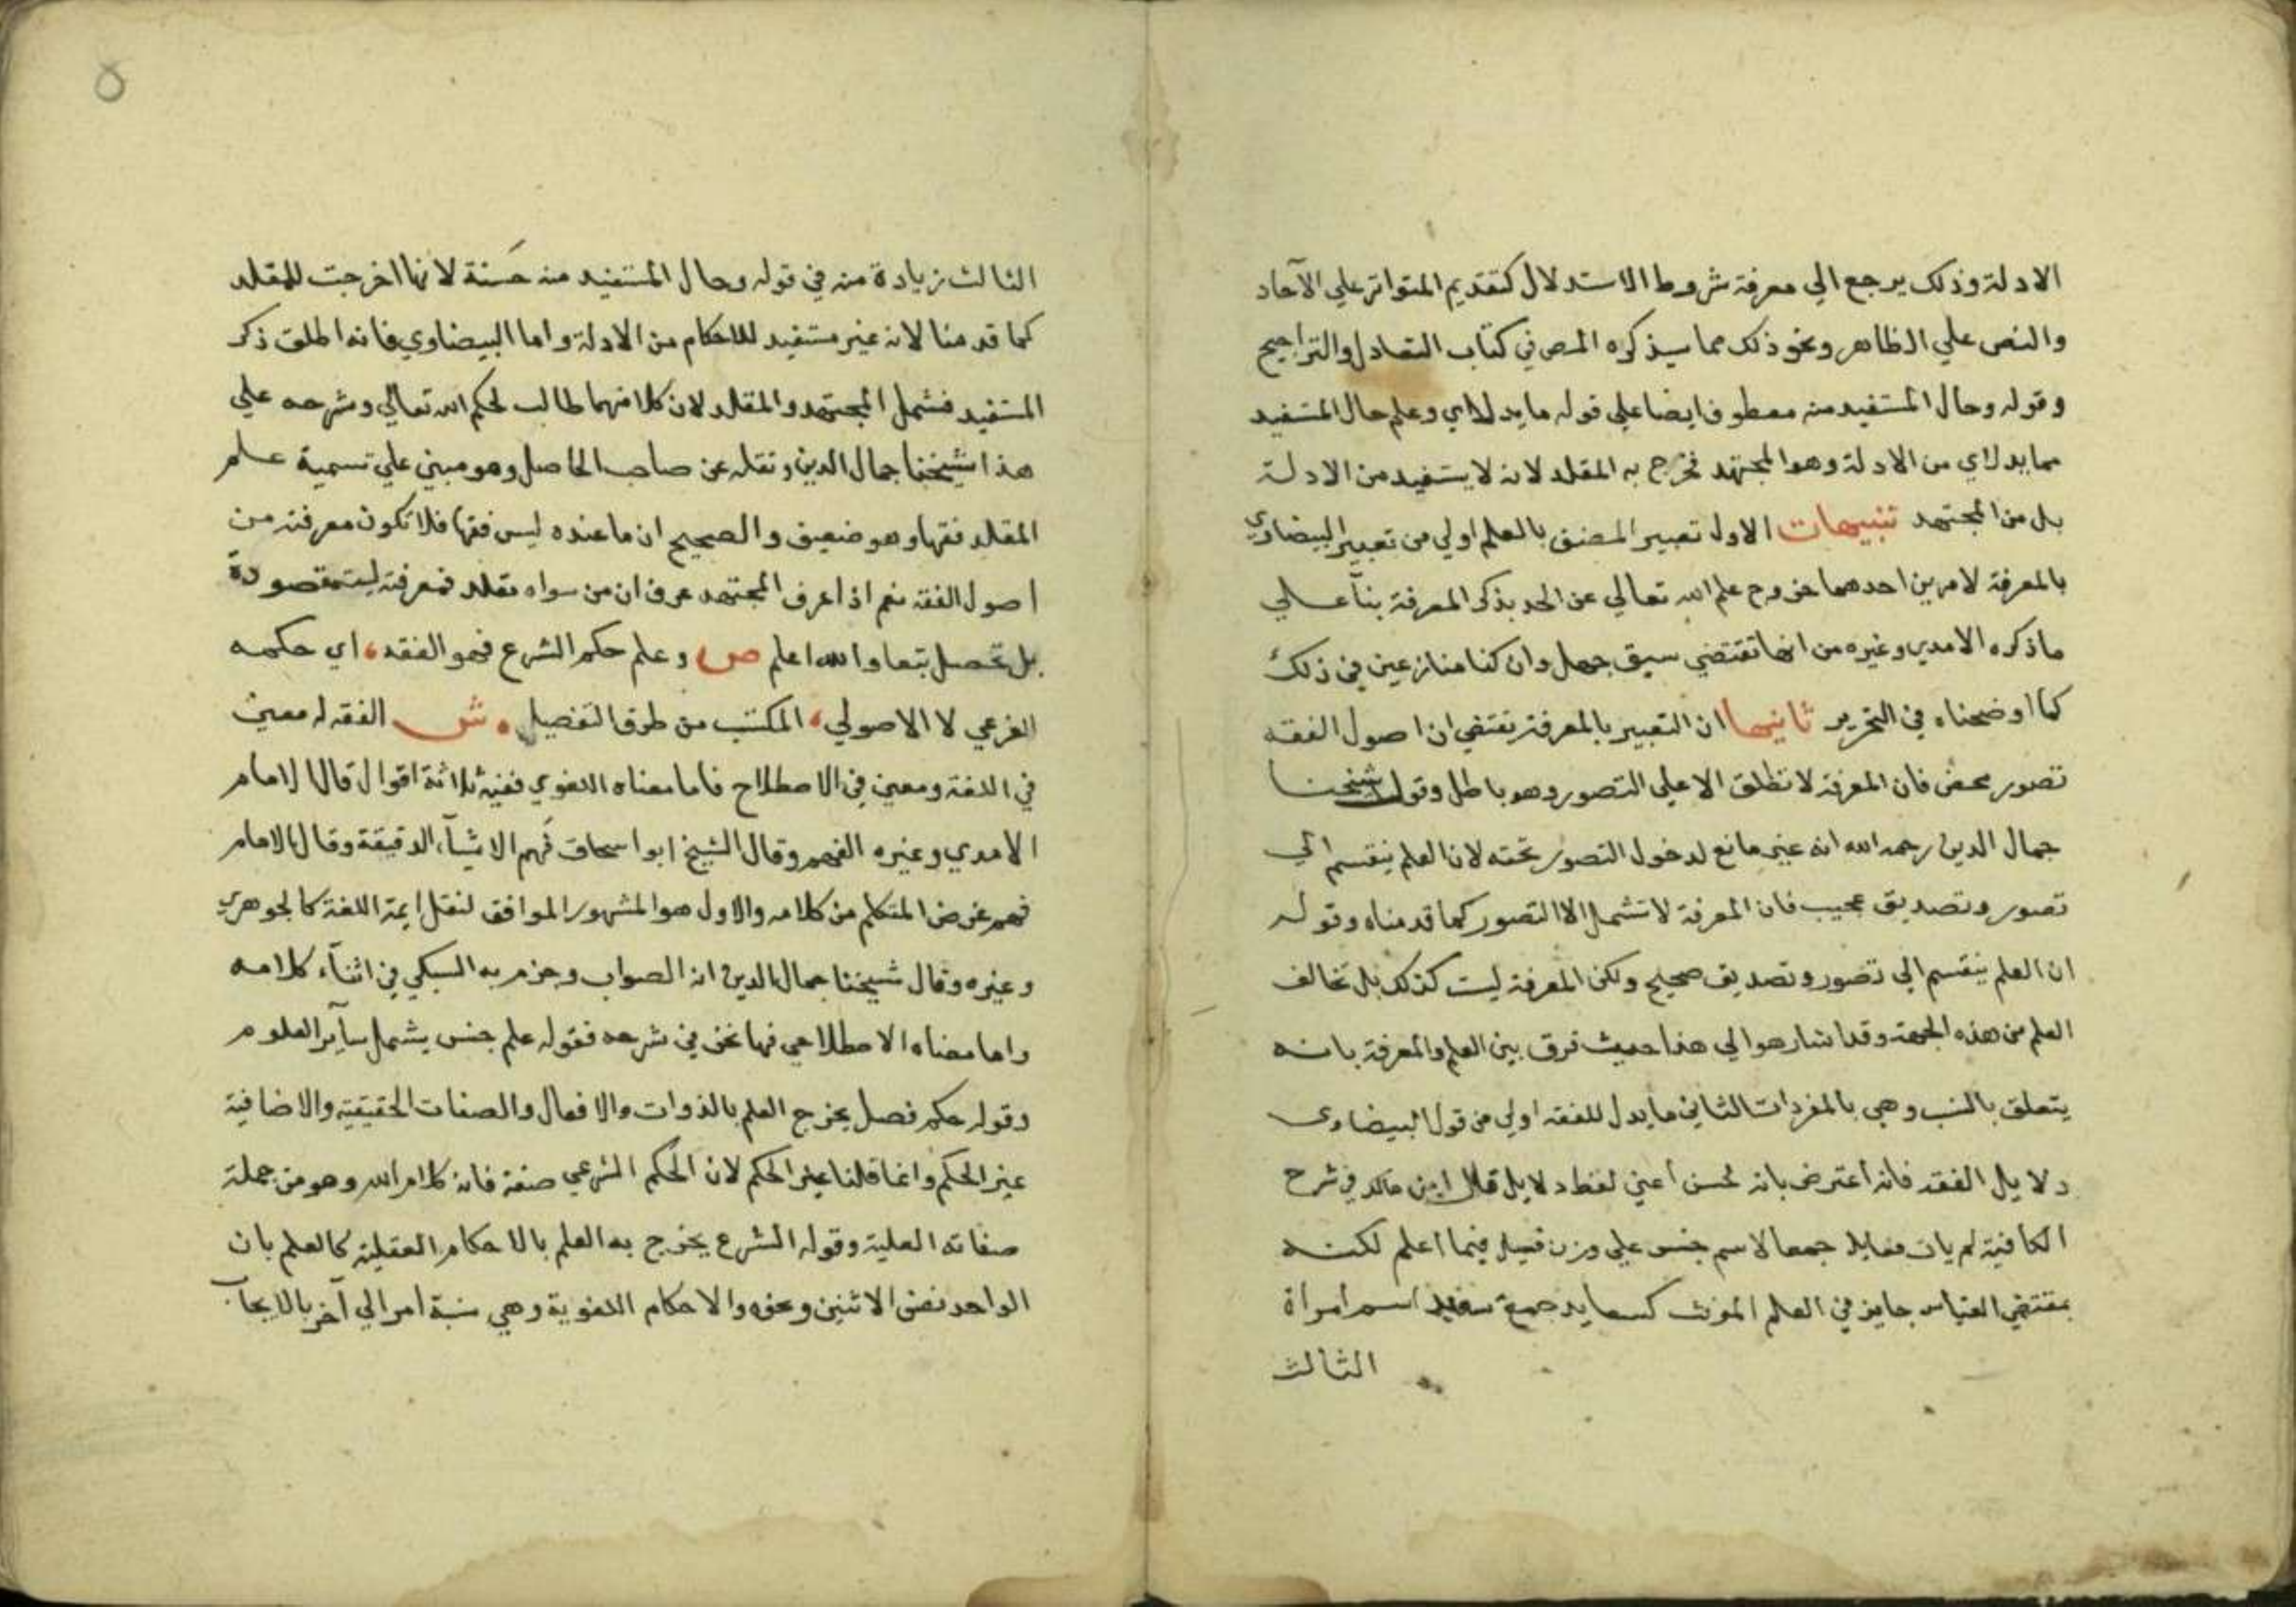 الادلة وذلك يرجع الي معرفة شروط الاستدلال كتقديم المتواتر علي الآحاد
والنص علي الظاهر ونحو ذلك مما سيذكره المص في كتاب التعادل والتراجيح
وقوله وحال المستفيد منه معطوف ايضا علي قوله ما يدل اي وعلم حال المستفيد
مما يدل اي من الادلة وهو المجتهد فخرج به المقلد لانه لا يستفيد من الادلة
بل من المجتهد تنبيهات الاول تعبير المصنف بالعلم اولي من تعبير البيضاوي
بالمعرفة لامرين احدهما خروج علم الله تعالي عن الحد بذكر المعرفة بنآ علي
ما ذكره الامدي وغيره من انها تقتضي سبق جهل وان كنا منازعين في ذلك
كما اوضحناه في التحرير ثانيها ان التعبير بالمعرفة يقتضي ان اصول الفقه
تصور محض فان المعرفة لا تطلق الا علي التصور وهو باطل وقول شيخنا
جمال الدين رحمه الله انه غير مانع لدخول التصور تحته لان العلم ينقسم الي
تصور وتصديق عجيب فان المعرفة لا تشمل الا التصور كما قدمناه وقوله
ان العلم ينقسم الي تصور وتصديق صحيح ولكن المعرفة ليست كذلك بل تخالف
العلم من هذه الجهة وقد اشار هو الي هذا حيث فرق بين العلم والمعرفة بانه
يتعلق بالنسب وهي بالمفردات الثاني ما يدل للفقه اولي من قول البيضاوي
دلايل الفقه فانه اعترض بانه لحسن اعني لفظ دلايل قال ابن مالك في شرح
الكافية لم يات فعايل جمعا لاسم جنس علي وزن فعيل فيما اعلم لكنه
بمقتضي القياس جايز في العلم المونث كسعايد جمع سعيد اسم امراة
الثالث
٥
الثالث زيادة منه في قوله وحال المستفيد منه حسنة لانها اخرجت المقلد
كما قدمنا لانه غير مستفيد للاحكام من الادلة واما البيضاوي فانه اطلق ذكر
المستفيد فشمل المجتهد والمقلد لان كلا منهما طالب لحكم الله تعالي وشرحه علي
هذا شيخنا جمال الدين ونقله عن صاحب الحاصل وهو مبني علي تسمية علم
المقلد فقها وهو ضعيف والصحيح ان ما عنده ليس فقها فلا تكون معرفته من
اصول الفقه نعم اذا عرف المجتهد عرف ان من سواه مقلد فمعرفته ليست مقصودة
بل تحصل تبعا والله اعلم ص وعلم حكم الشرع فهو الفقه، اي حكمه
الفرعي لا الاصولي، المكتسب من طرق التفصيل ش الفقه له معني
في اللغة ومعني في الاصطلاح فاما معناه اللغوي ففيه ثلاثة اقوال قال الامام
الامدي وغيره الفهم وقال الشيخ ابو اسحاق فهم الاشيآء الدقيقة وقال الامام
فهم غرض المتكلم من كلامه والاول هو المشهور الموافق لنقل ايمة اللغة كالجوهري
وغيره وقال شيخنا جمال الدين انه الصواب وجزم به السبكي في اثنآء كلامه
واما معناه الاصطلاحي فها نحن في شرحه فقوله علم جنس يشمل سآير العلوم
وقوله حكم فصل يخرج العلم بالذوات والافعال والصفات الحقيقية والاضافية
غير الحكم وانما قلنا غير الحكم لان الحكم الشرعي صفة فانه كلام الله وهو من جملة
صفاته العلية وقوله الشرع يخرج به العلم بالاحكام العقلية كالعلم بان
الواحد نصف الاثنين ونحوه والاحكام اللغوية وهي نسبة امر الي آخر بالايجاب